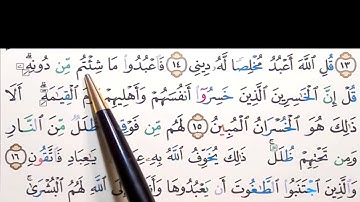 ١٣ قُلِ اللَّهَ أَعْبُدُ مُخْلِصًا لَّهُ دِينِي ١٤ فَاعْبُدُوا مَا شِئْتُم مِّن دُونِهِ ۗ
قُلْ إِنَّ الْخَاسِرِينَ الَّذِينَ خَسِرُوا أَنفُسَهُمْ وَأَهْلِيهِمْ الْقِيَامَةِ ۗ أَلَا
ذَٰلِكَ هُوَ الْخُسْرَانُ الْمُبِينُ ١٥ لَهُم مِّن فَوْقِهِمْ ظُلَلٌ مِّنَ النَّارِ
وَمِن تَحْتِهِمْ ظُلَلٌ ۚ ذَٰلِكَ يُخَوِّفُ اللَّهُ بِهِ يَاعِبَادِ فَاتَّقُونِ ١٦
وَالَّذِينَ اجْتَنَبُوا الطَّاغُوتَ أَن يَعْبُدُوهَا اللَّهِ لَهُمُ الْبُشْرَىٰ ۚ